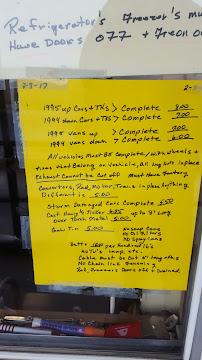 Refrigerator's Freezer's mu
Have Doors off + Freon ou
7-3-17
1995 up Cars + TKs > Complete 800
1994 down Cars + TKs > Complete 700
1995 vans up > Complete 700
1994 vans down > Complete 600
All vehicles Must BE Complete, with wheels +
tires that Belong on Vehicle, All Lug nuts in place
Exhaust Cannot be Cut off Must Have Factory
Converters, Rad, Motor, Trans in place Anything
Different is 5.00
Storm Damaged Cars Complete 550
up to 3' Long
5.00
Tin 5.00
No Soap Cans
No Oil Filters
No Spray Cans
per Hundred lb's
No TV's Lamp, etc
Cable Must be Cut
No Chain link Fence
Doors off + Drained